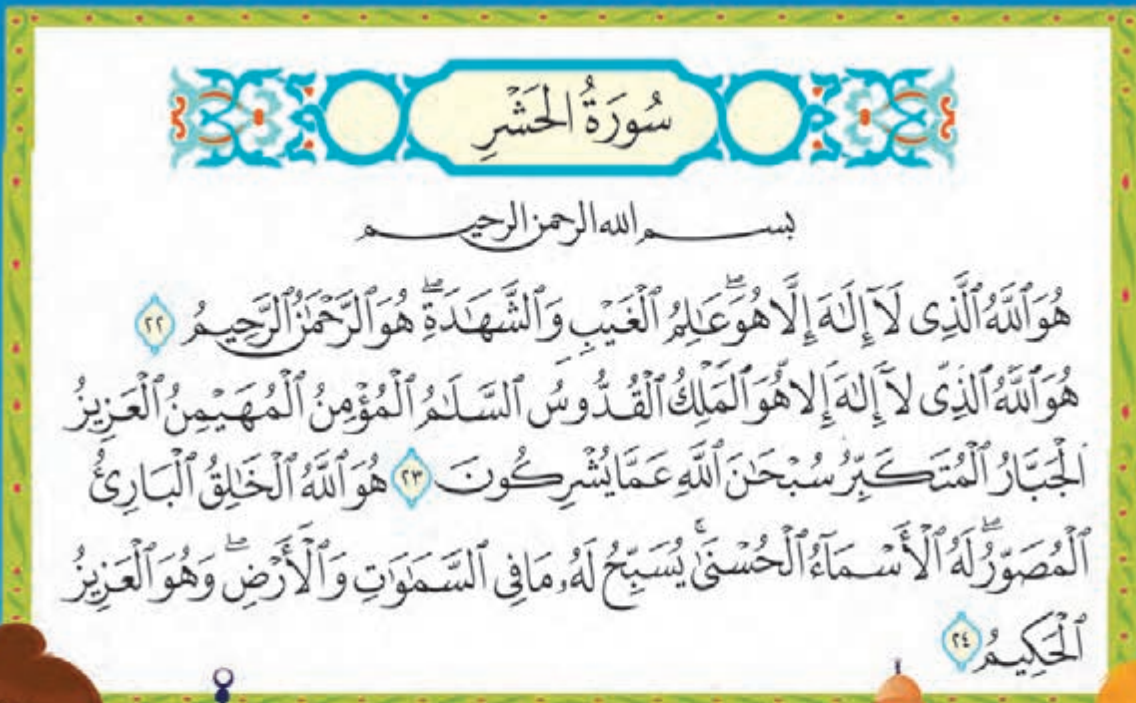 سُورَةُ الحَشْرِ
بسم الله الرحمن الرحيم
هُوَ ٱللَّهُ ٱلَّذِى لَآ إِلَٰهَ إِلَّا هُوَۖ عَٰلِمُ ٱلْغَيْبِ وَٱلشَّهَٰدَةِۖ هُوَ ٱلرَّحْمَٰنُ ٱلرَّحِيمُ ٢٢
هُوَ ٱللَّهُ ٱلَّذِى لَآ إِلَٰهَ إِلَّا هُوَ ٱلْمَلِكُ ٱلْقُدُّوسُ ٱلسَّلَٰمُ ٱلْمُؤْمِنُ ٱلْمُهَيْمِنُ ٱلْعَزِيزُ
ٱلْجَبَّارُ ٱلْمُتَكَبِّرُ سُبْحَٰنَ ٱللَّهِ عَمَّا يُشْرِكُونَ ٢٣ هُوَ ٱللَّهُ ٱلْخَٰلِقُ ٱلْبَارِئُ
ٱلْمُصَوِّرُۖ لَهُ ٱلْأَسْمَآءُ ٱلْحُسْنَىٰۚ يُسَبِّحُ لَهُۥ مَا فِى ٱلسَّمَٰوَٰتِ وَٱلْأَرْضِۖ وَهُوَ ٱلْعَزِيزُ
ٱلْحَكِيمُ ٢٤